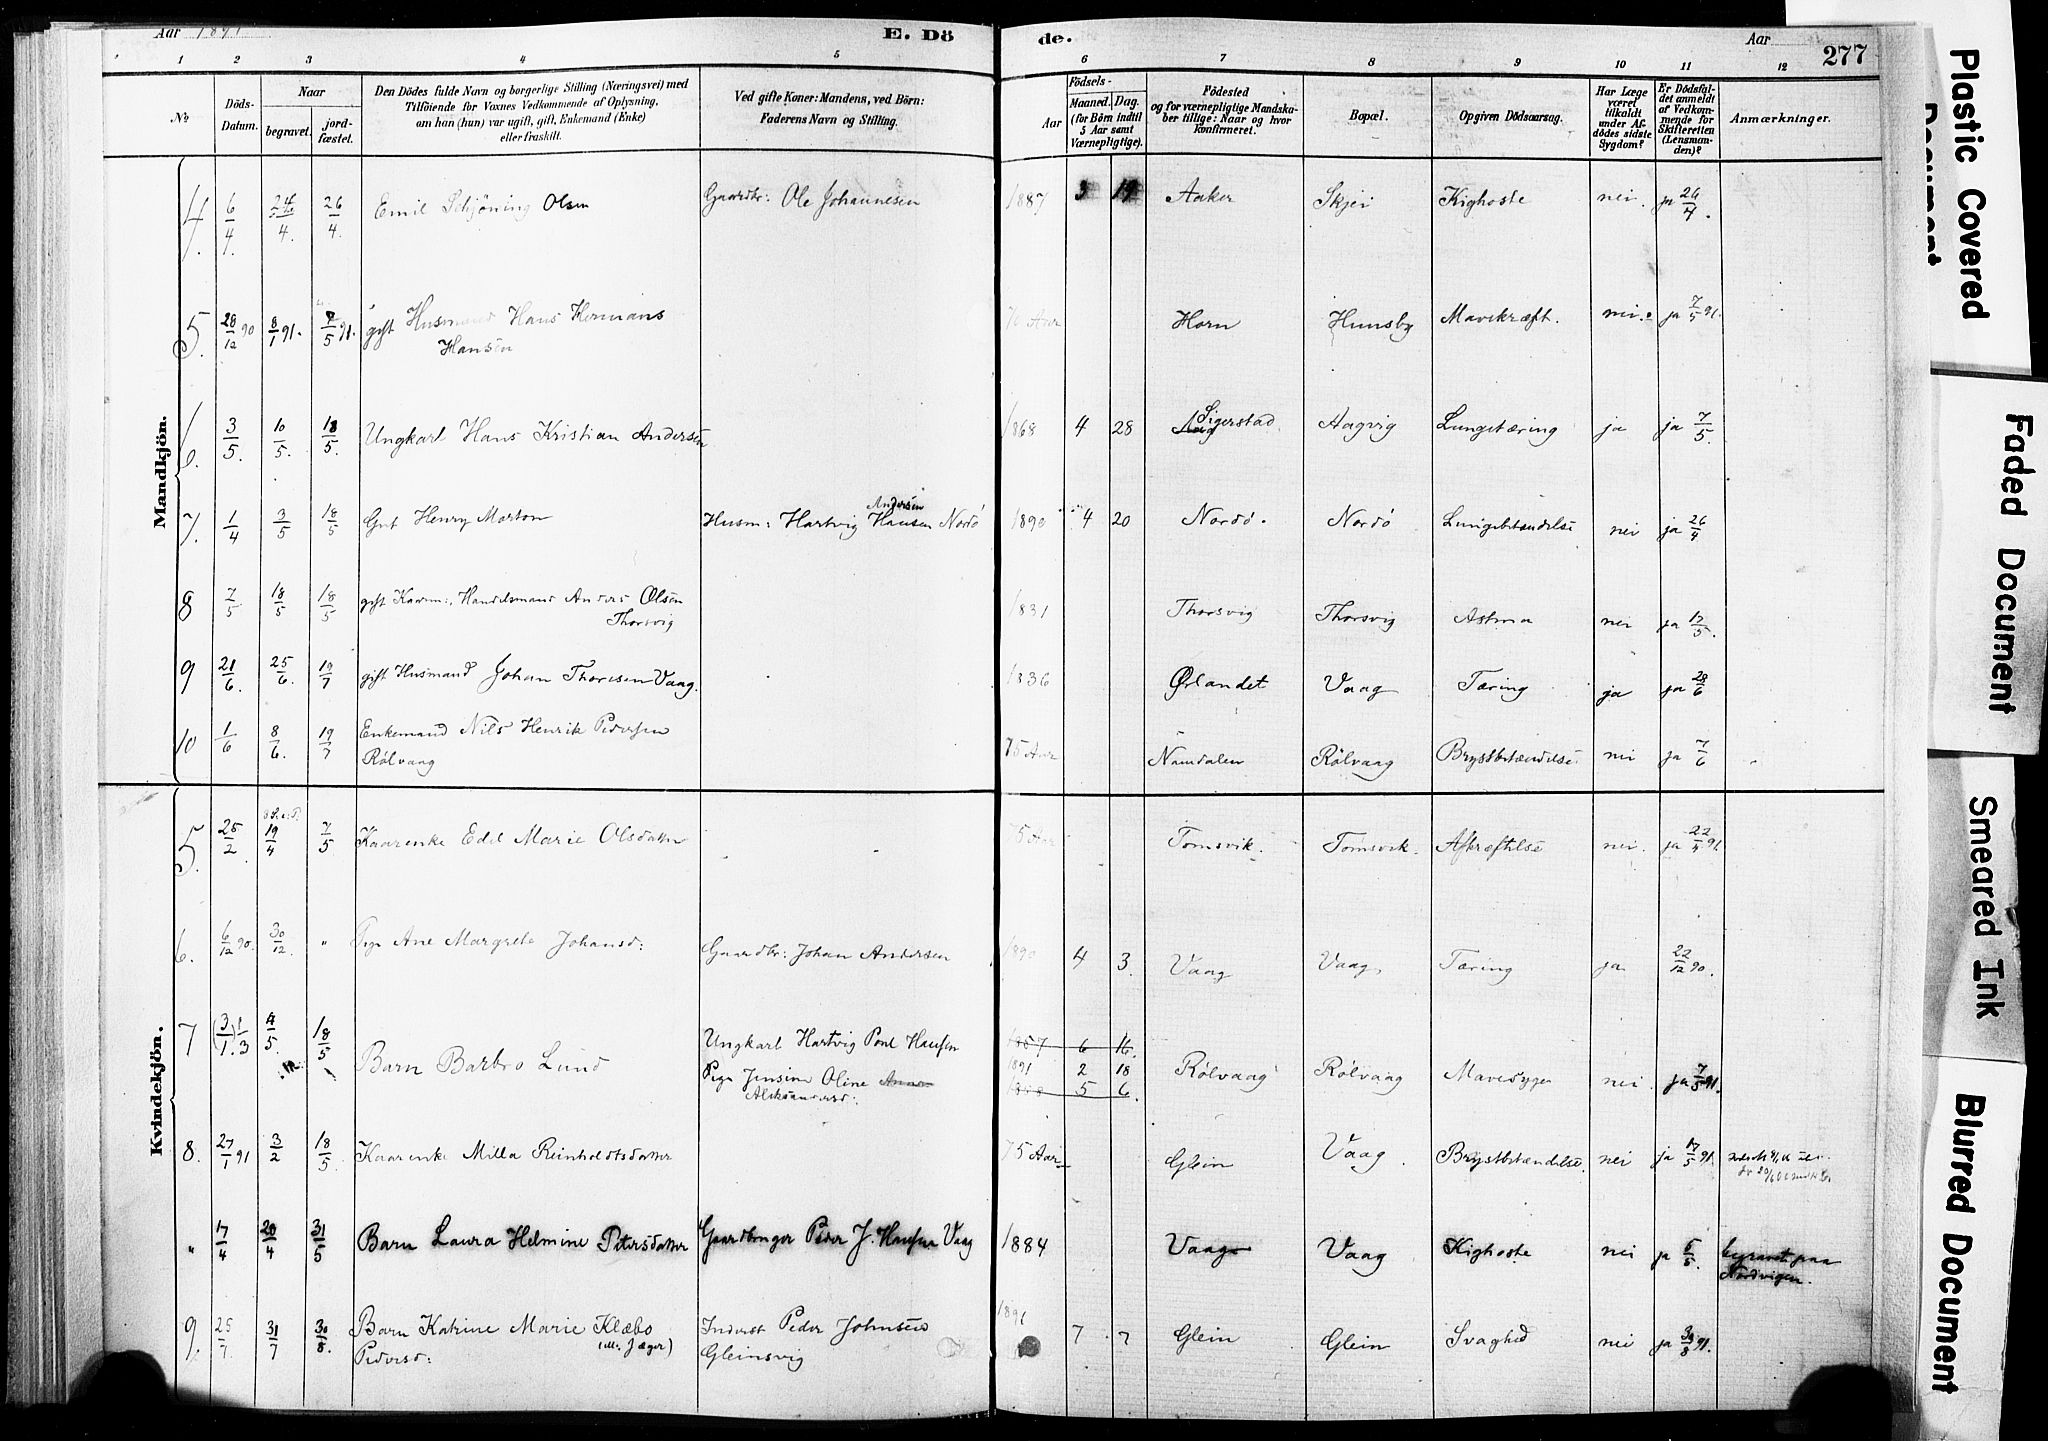 Aar 1891.
E. Dö
de.
Aar
277
1 2 3 4 5 6 7 8 9 10 11 12
No
Döds-Datum.
Naar
begravet. jord-fæstet.
Den Dödes fulde Navn og borgerlige Stilling (Næringsvei) med
Tilföiende for Voxnes Vedkommende af Oplysning,
om han (hun) var ugift, gift, Enkemand (Enke)
eller fraskilt.
Ved gifte Koner: Mandens, ved Börn:
Faderens Navn og Stilling.
Födsels-
Aar Maaned. Dag.
(for Börn indtil
5 Aar samt
Værnepligtige).
Födested
og for værnepligtige Mandska-
ber tillige: Naar og hvor
konfirmeret.
Bopæl.
Opgiven Dödsaarsag.
Har Læge
været
tilkaldt
under Af-
dödes sidste
Sygdom?
Er Dödsfal-
det anmeldt
af Vedkom-
mende for
Skifteretten
(Lensman-
den)?
Anmærkninger.
Mandkjön.
4. 6/4. 26/4. 26/4. Emil Schjöning Olsen Gaardbr: Ole Johannesen 1887 3 19 Aaker Skjei Kighoste nei. ja 26/4.
5. 28/12 90 8/1 91. 7/5 91. gift Husmand Hans Hermans Horn Hunsby Mavekræft. nei. ja 7/5 91.
Hansen
6. 3/5. 10/5. 18/5. Ungkarl Hans Kristian Andersen 1868 4 28 Sigerstad Aagvig Lungetæring ja ja 7/5.
Andersen
7. 1/4 3/5 18/5 Gut Henry Morton Husm: Hartvig Hansen Nordö 1890 4 20 Nordö. Nordö Lungebetændelse nei ja 26/4
8 7/5 18/5 18/5 gift Kaarm:, Handelsmand Anders Olsen 1831 Thorsvig Thorsvig Astma nei ja 17/5.
Thorsvig
9 21/6. 25/6. 19/7 gift Husmand Johan Thoresen Vaag. 1836 Ørlandet Vaag Tæring ja ja 28/6
10 1/6 8/6. 19/7 Enkemand Nils Henrik Pedersen 75 Aar Namdalen Rølvaag Brystbetændelse nei ja 7/6
Rølvaag
Kvindekjön.
5. 25/2 19/4 7/5 Kaarenke Edel Marie Olsdatter 75 Aar Tomsvik. Tomsvik. Afkræftelse nei. ja 22/4 91
6. 6/12 90. 30/12. " Pige Ane Margrete Johansd: Gaardbr: Johan Andersen 1890 4 3. Vaag Vaag Tæring ja 22/12 90.
7 (3/1) 1/3 4/5. 18/5 Barn Barbro Lund Ungkarl Hartvig Pont Hansen 1857 6 16.
Pige Jensine Oline Anna 1891 2 18 Rølvaag Rølvaag Mavesyge nei ja 7/5 91.
Aleksandersd: 1868 5 6
8. 27/1 91 3/2 18/5 Kaarenke Milla Reinholdtsdatter 75 Aar Glein Vaag. Brystbetændelse. nei ja 17/5 91
" 17/4 20/4 31/5 Barn Laura Helmine Petersdatter Gaardbruger Peder J. Hansen Vaag 1884 Vaag Vaag Kighoste nei ja 5/5. begravet paa
Nordvigen.
9. 25/7. 31/7 30/8. Barn Katrine Marie Klæbo Inderst Peder Johnsen 1891 7 7 Glein Glein Svaghed nei ja 30/8 91.
Pedersd: (ell: Jæger) Gleinsvig
Plastic Covered
Document
Faded Document
Smeared Ink
Blurred Document